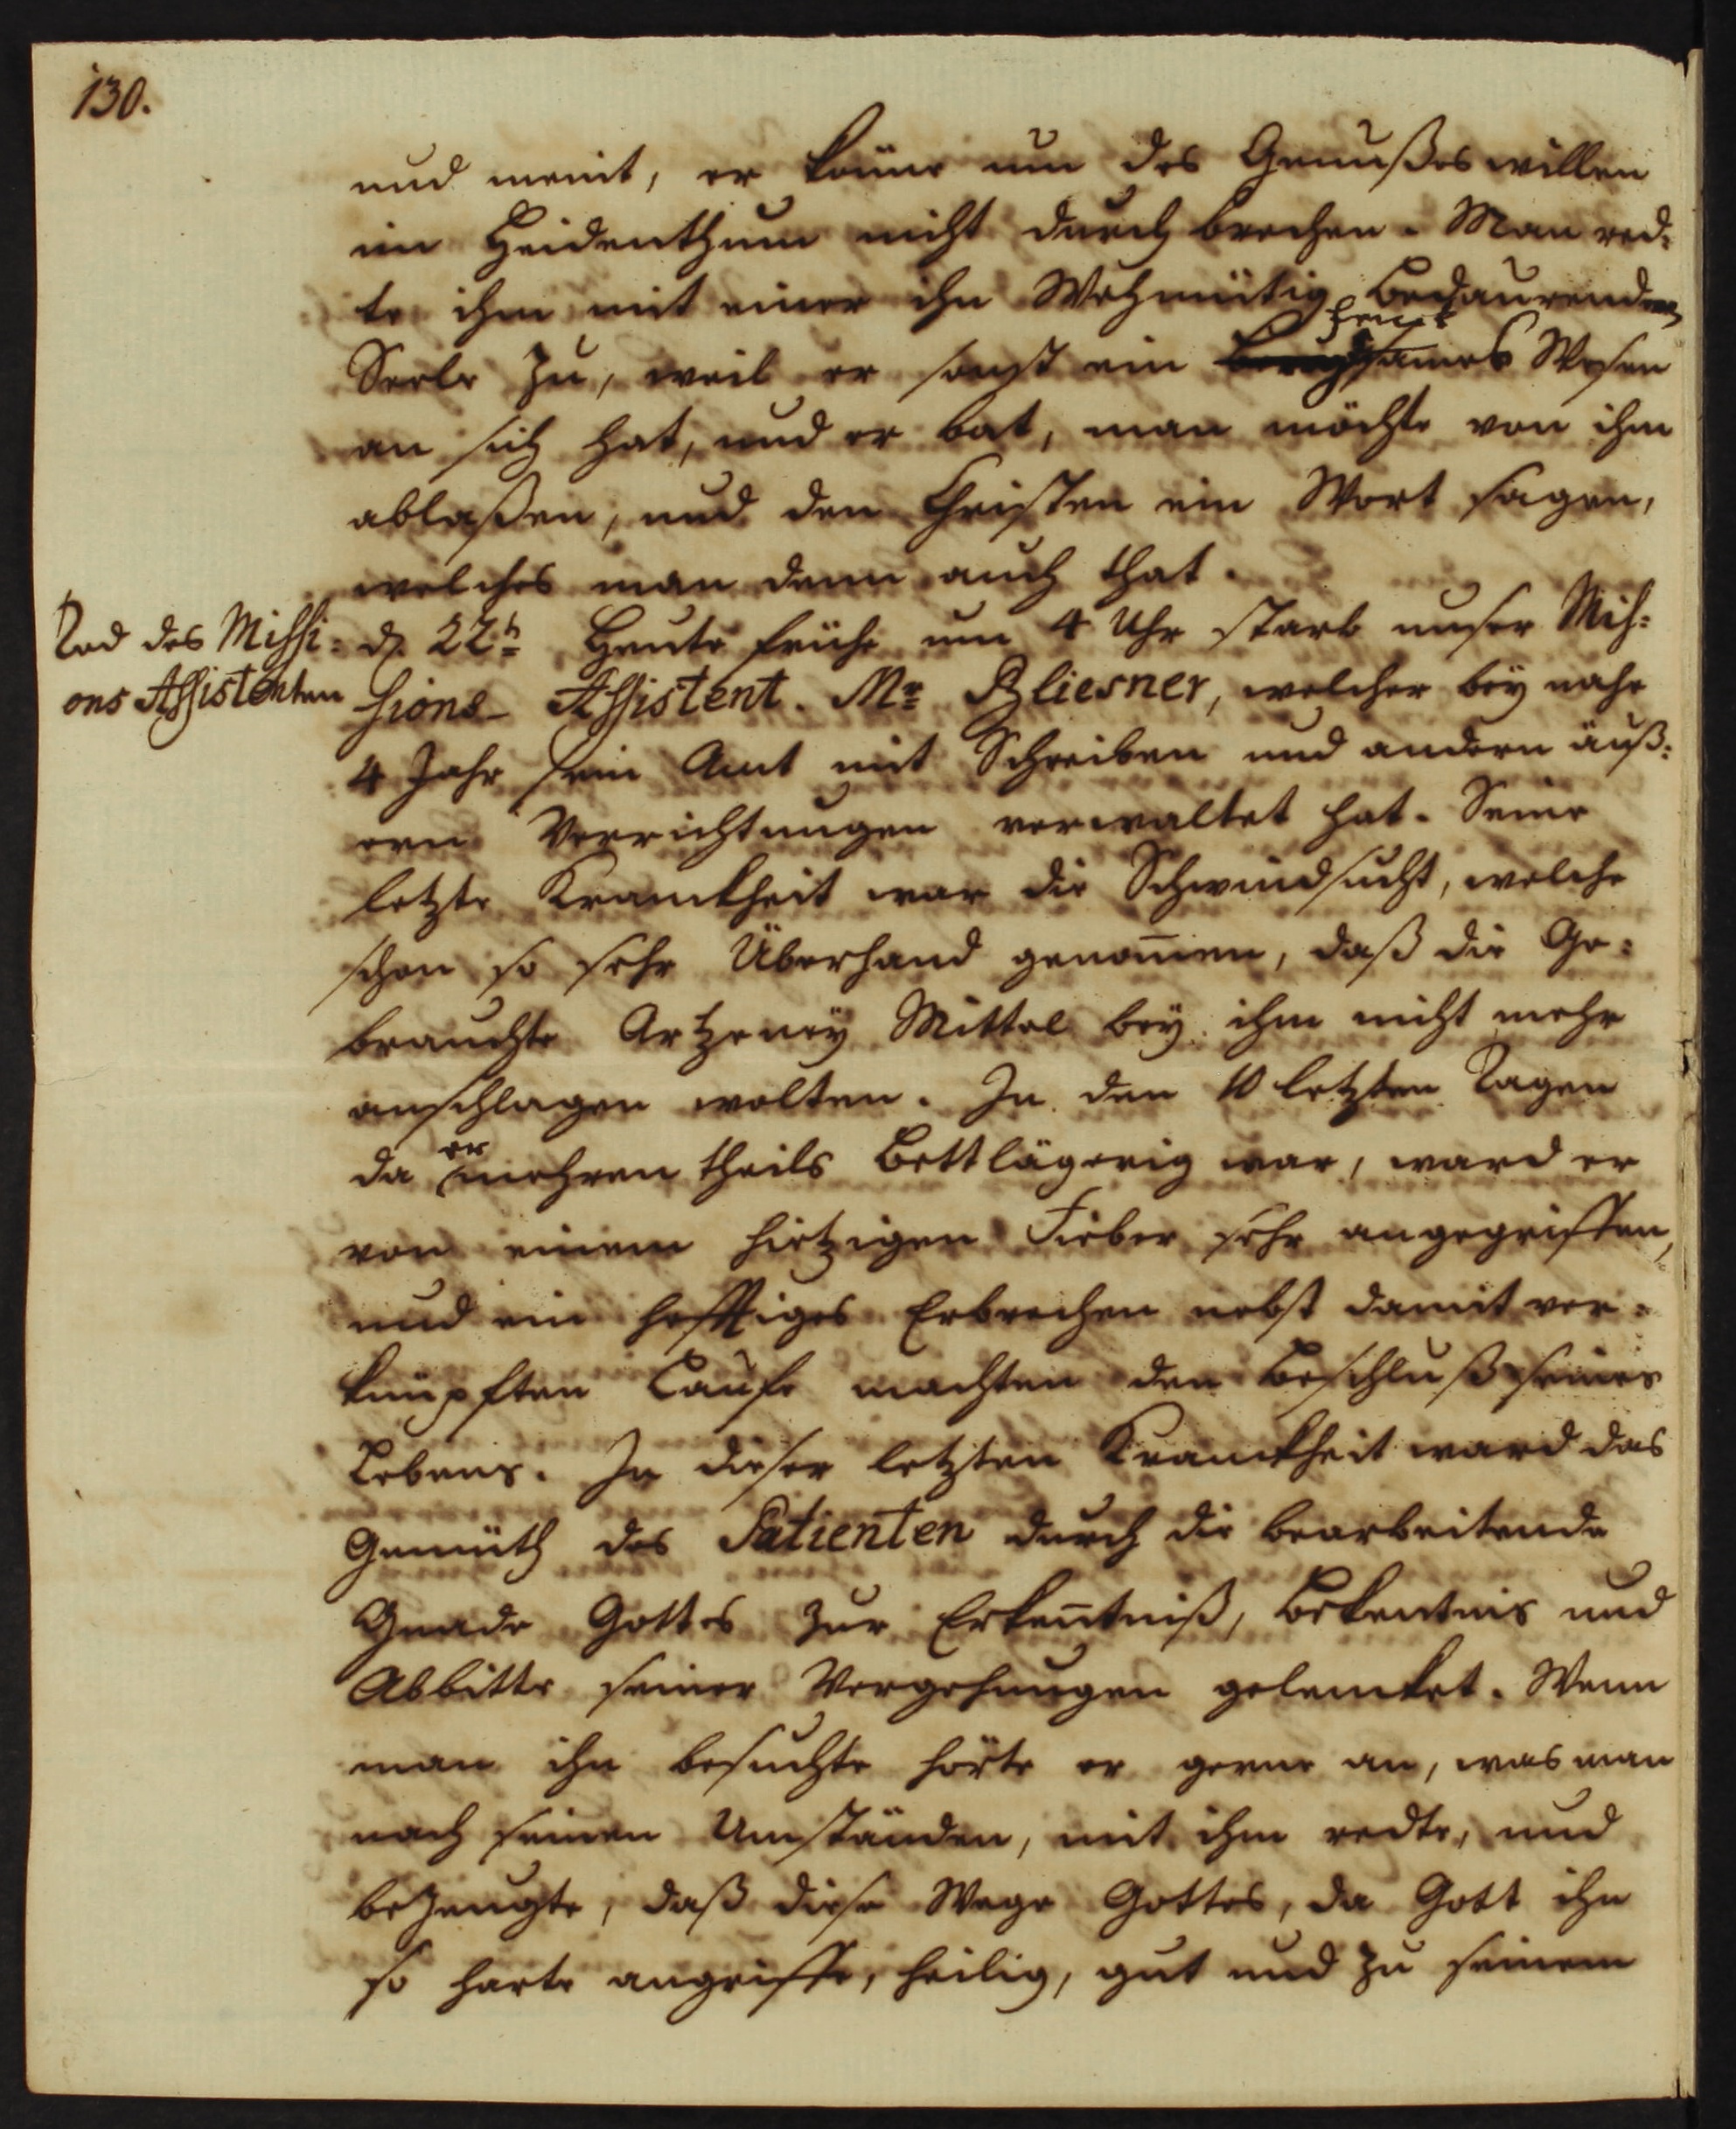 130.
und meint, er könne um des Genußes willen
im Heidenthum nicht durch brechen. Man red=
te ihm mit einer ihn Wehmütig bedaurenden
Seele zu, weil er sonst ein sames Wesen
an sich hat, und er bat, man möchte von ihm
ablaßen, und den Christen ein Wort sagen,
welches man denn auch that.
Tod des Missi=
ons Assistenten
d. 22t Heute frühe um 4 Uhr starb unser Mis=
sions- Assistent. Mr Bliesner, welcher bey nahe
4 Jahr sein Amt mit Schreiben und andern äuß=
ern Verrichtungen verwaltet hat. Seine
letzte Kranckheit war die Schwindsucht, welche
schon so sehr Überhand genom̄en, daß die Ge=
brauchte Artzeney Mittel bey ihm nicht mehr
anschlagen wolten. In den 10 letzten Tagen
da er mehren theils Bettlägerig war, ward er
von einem hietzigen Fieber sehr angegriffen,
und ein hefftiges Erbrechen nebst damit ver=
knüpften machten den Beschluß seines
Lebens. In dieser letzten Kranckheit ward das
Gemüth des Patienten durch die bearbeitende
Gnade Gottes zur Erken̄tniß, Bekentnis und
Abbitte seiner Vergehungen gelencket. Wenn
man ihn besuchte hörte er gerne an, was man
nach seinen Umständen, mit ihm redte, und
bezeugte, daß diese Wege Gottes, da Gott ihn
so harte angriffe, heilig, gut und zu seinem